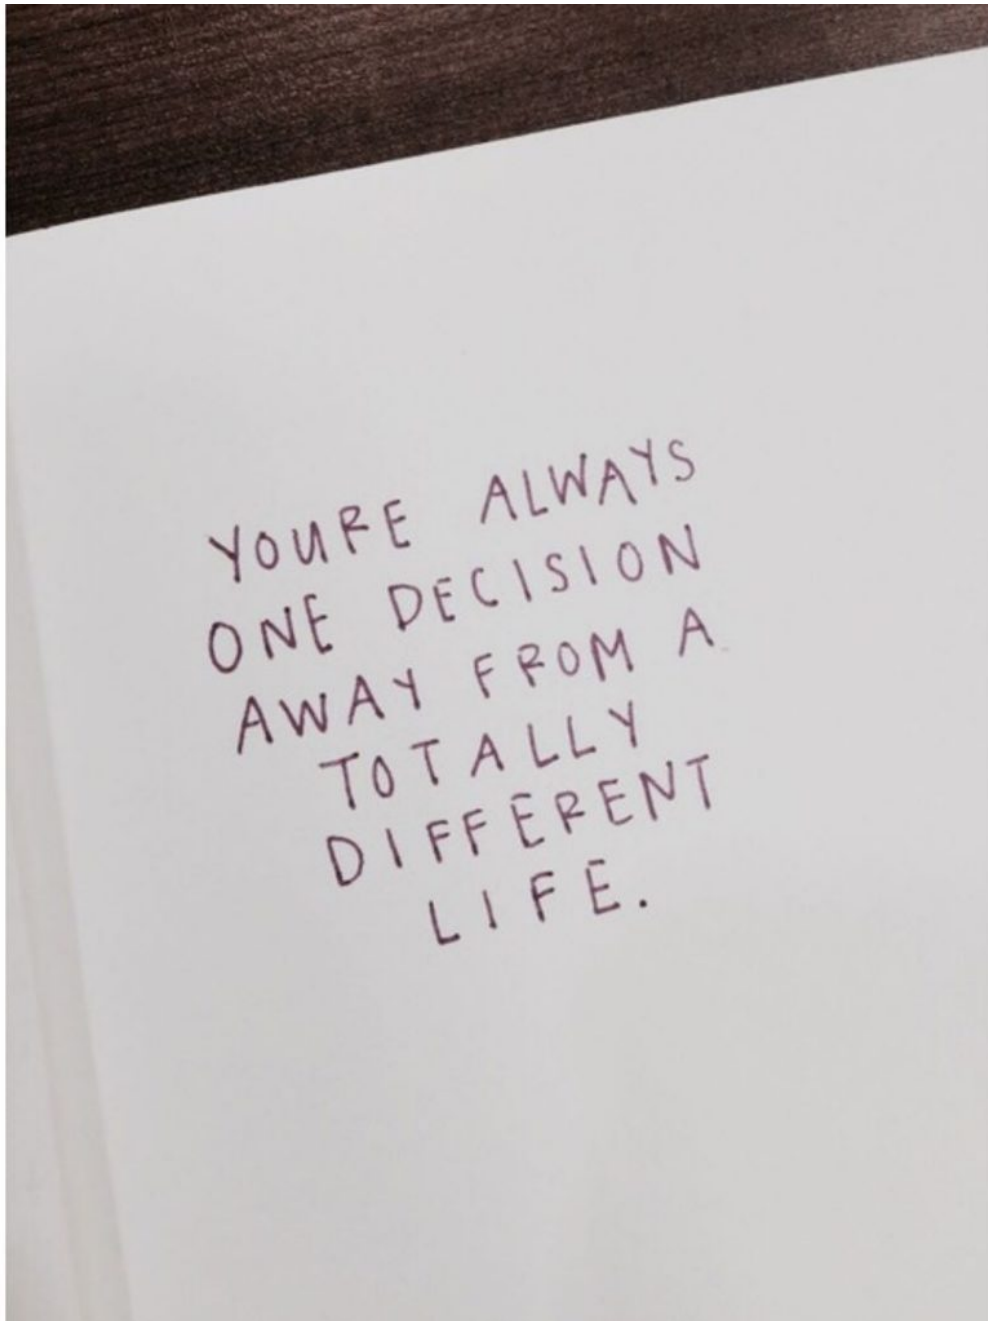 YOURE ALWAYS
ONE DECISION
AWAY FROM A
TOTALLY
DIFFERENT
LIFE.